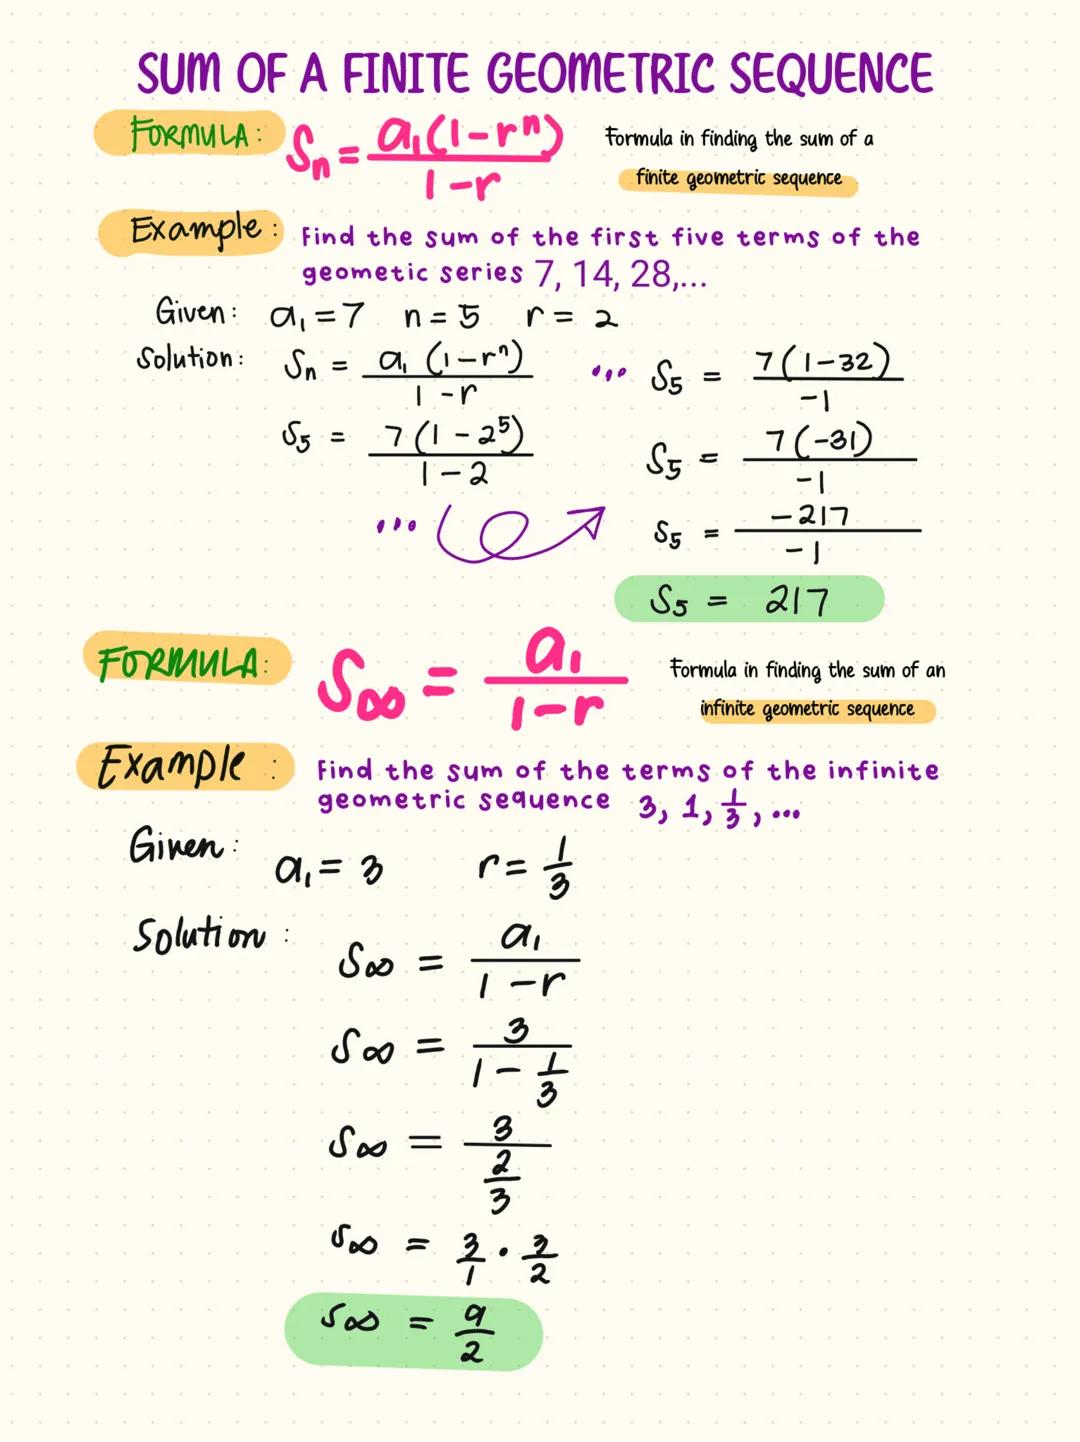 SUM OF A FINITE GEOMETRIC SEQUENCE
FORMULA: Sₙ = a₁(1-rⁿ) / 1-r
Formula in finding the sum of a
finite geometric sequence
Example: Find the sum of the first five terms of the
geometic series 7, 14, 28,...
Given: a₁ = 7 n = 5 r = 2
Solution: Sₙ = a₁ (1-rⁿ) / 1-r
S₅ = 7(1-2⁵) / 1-2
...
... S₅ = 7(1-32) / -1
S₅ = 7(-31) / -1
S₅ = -217 / -1
S₅ = 217
FORMULA: S∞ = a₁ / 1-r
Formula in finding the sum of an
infinite geometric sequence
Example: Find the sum of the terms of the infinite
geometric sequence 3, 1, 1/3, ...
Given: a₁ = 3 r = 1/3
Solution: S∞ = a₁ / 1-r
S∞ = 3 / 1 - 1/3
S∞ = 3 / 2/3
S∞ = 3/1 · 3/2
S∞ = 9/2